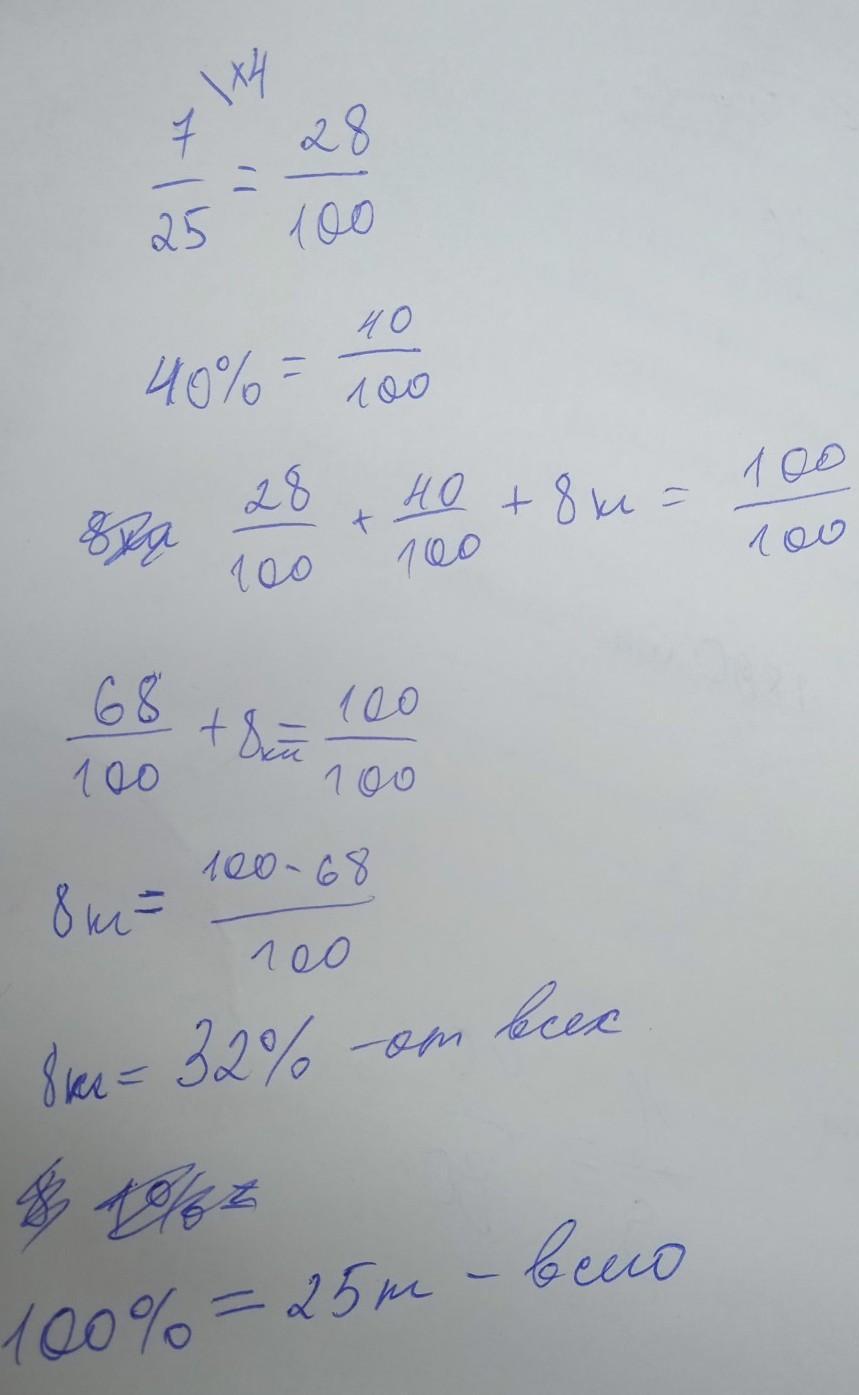 \x4
7/25 = 28/100
40% = 40/100
28/100 + 40/100 + 8кг = 100/100
68/100 + 8кг = 100/100
8кг = 100-68/100
8кг = 32% - от всех
100% = 25кг - всего